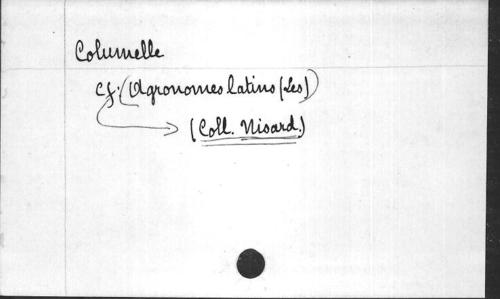 Columelle
cf. (Agronomes latins [Les])
(Coll. Nisard.)